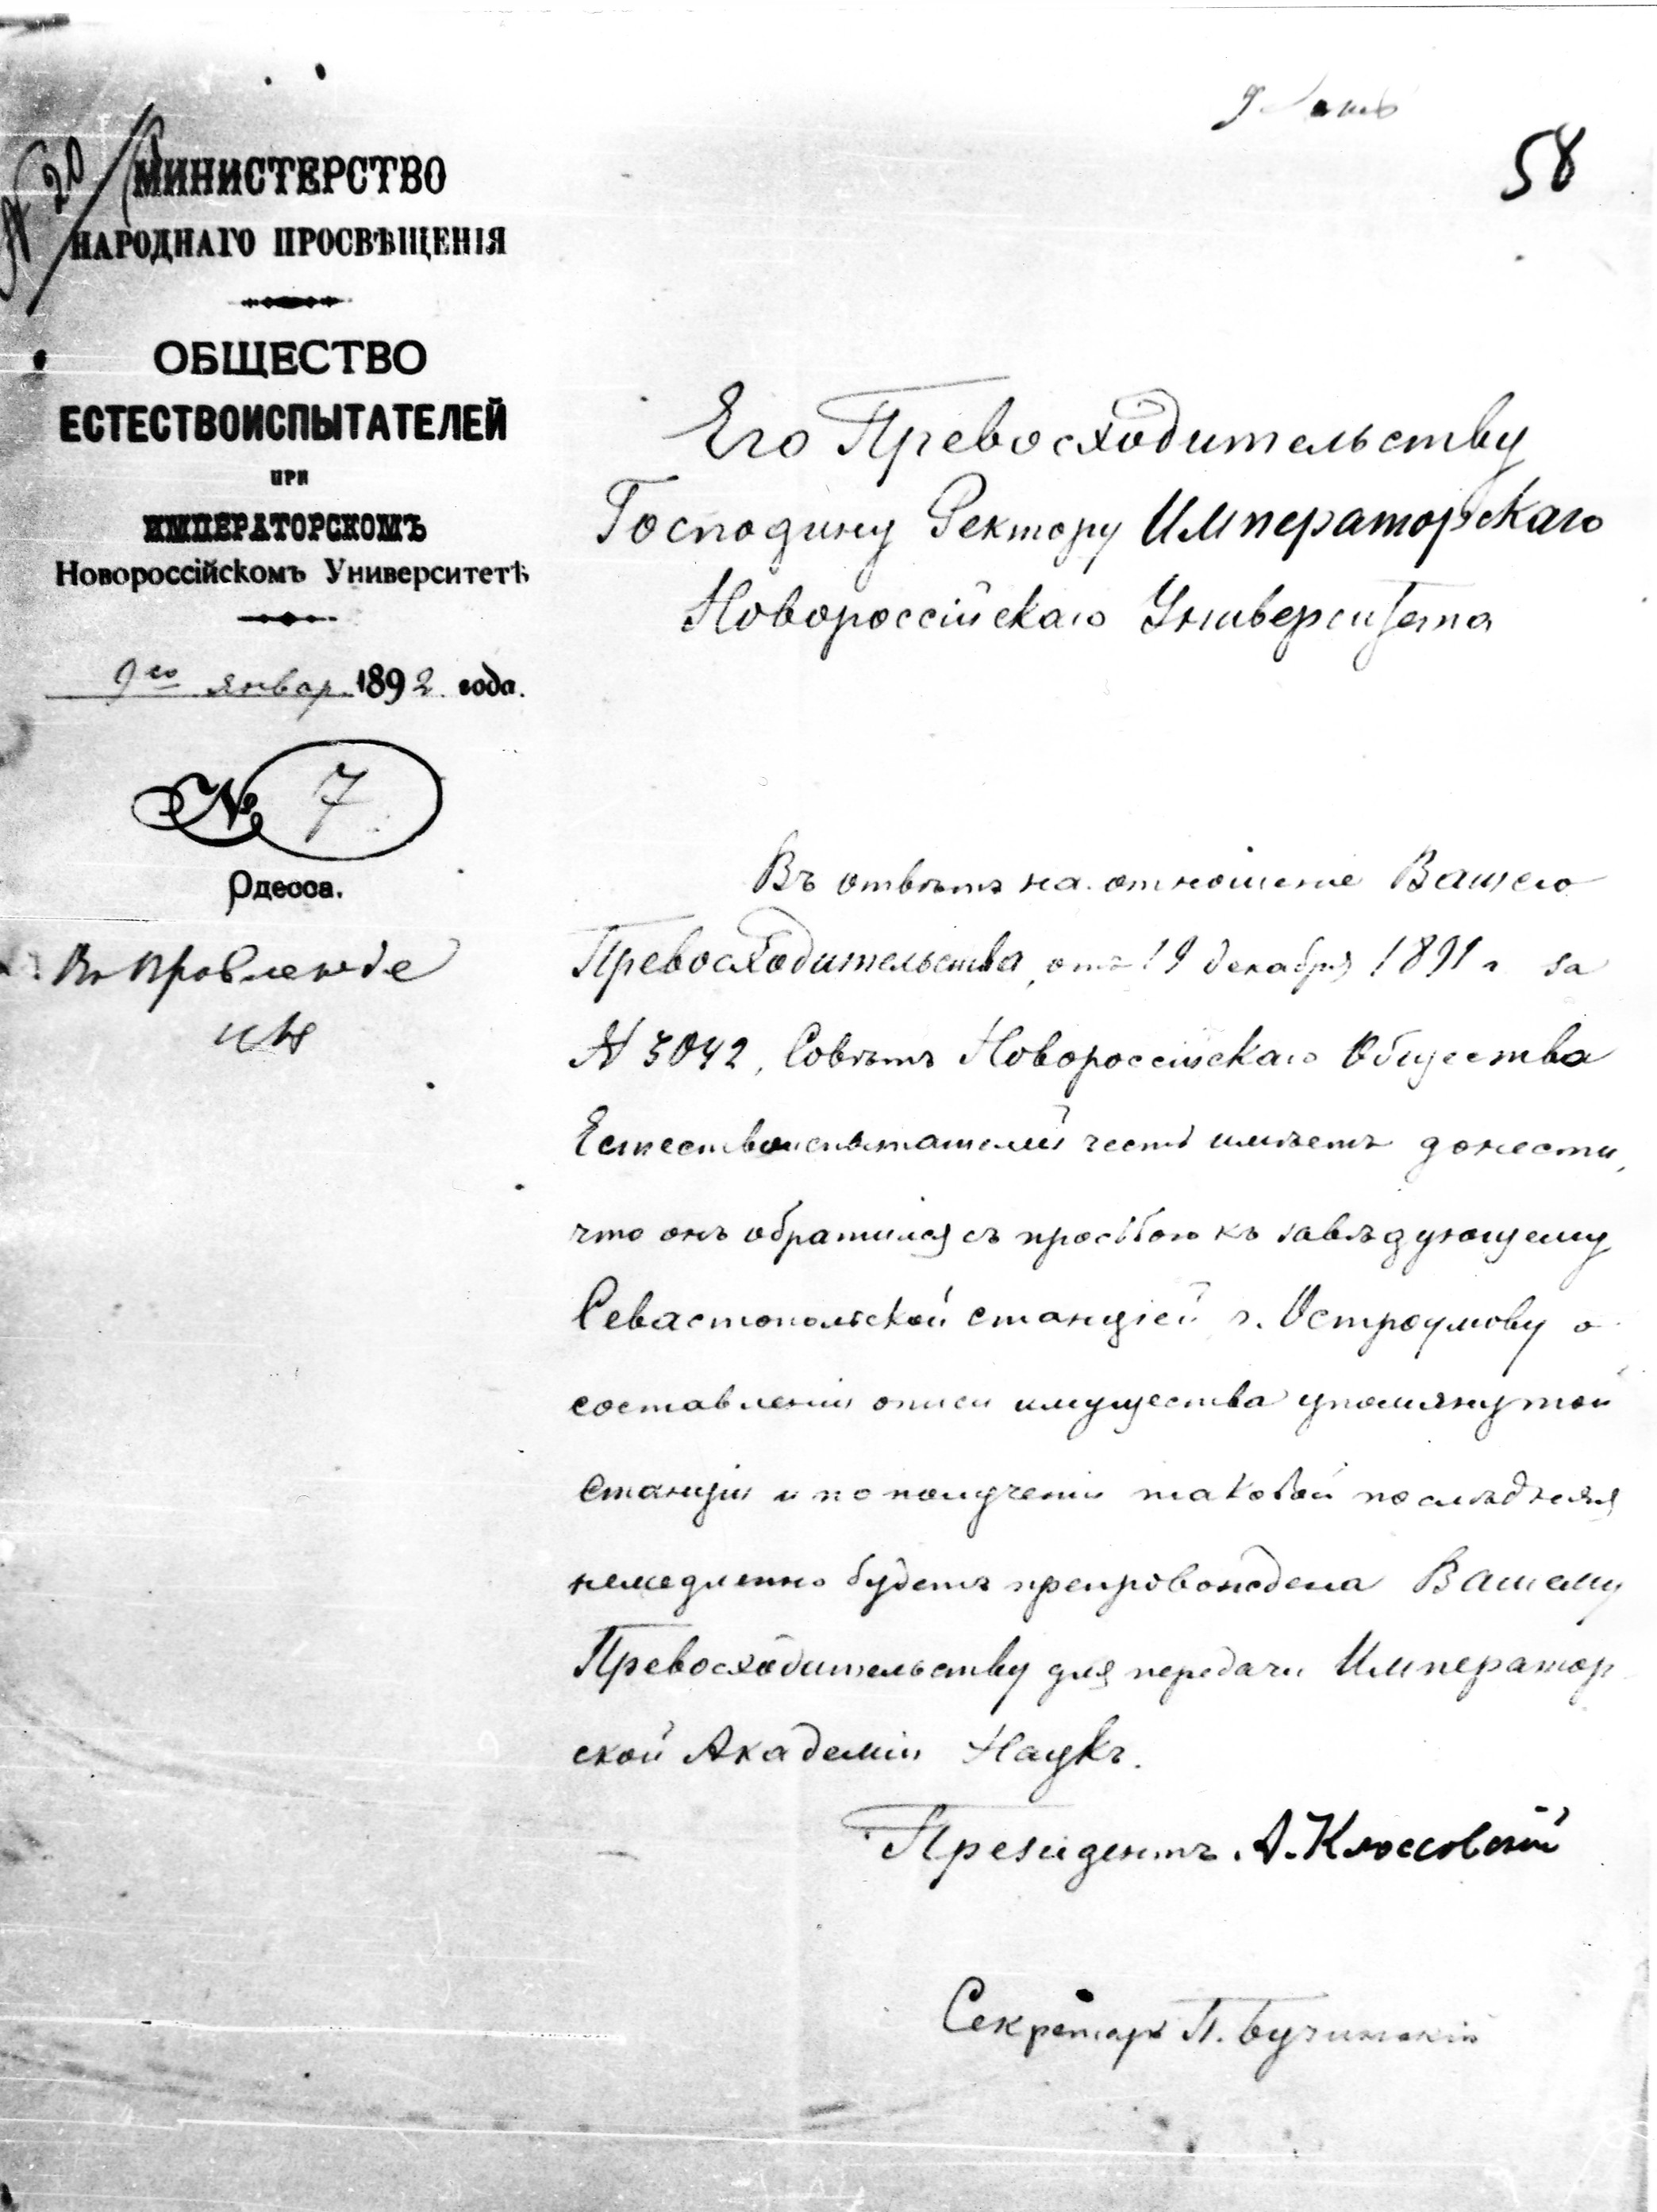 58
№ 20
МИНИСТЕРСТВО
НАРОДНАГО ПРОСВѢЩЕНІЯ
ОБЩЕСТВО
ЕСТЕСТВОИСПЫТАТЕЛЕЙ
ПРИ
ИМПЕРАТОРСКОМЪ
Новороссійскомъ Университетѣ
9го январ. 1892 года.
№ 7
Одесса.
Его Превосходительству
Господину Ректору Императорскаго
Новороссійскаго Университета
Въ отвѣтъ на отношеніе Вашего
Превосходительства, отъ 19 декабря 1891 г. за
№ 3042, Совѣтъ Новороссійскаго Общества
Естествоиспытателей честь имѣетъ донести,
что онъ обратился съ просьбою къ завѣдующему
Севастопольской станціей г. Остроумову о
составленіи описи имущества упомянутой
станціи и по полученіи таковой послѣдняя
немедленно будетъ препровождена Вашему
Превосходительству для передачи Император
ской Академіи Наукъ.
Президентъ А. Клоссовскій
Секретарь П. Бучинскій